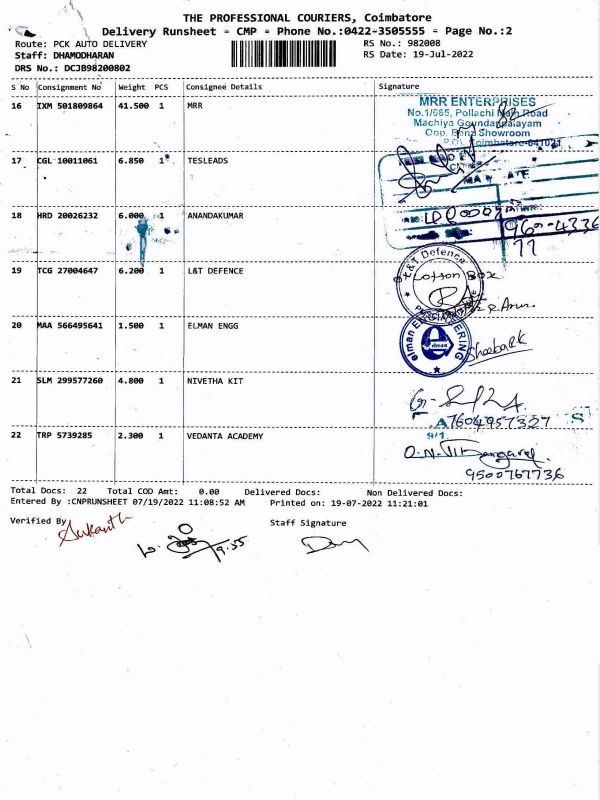 THE PROFESSIONAL COURIERS, Coimbatore
Delivery Runsheet - CMP - Phone No.:0422-3505555 - Page No.:2
Route: PCK AUTO DELIVERY RS No.: 982008
Staff: DHAMODHARAN RS Date: 19-Jul-2022
DRS No.: DCJB98200802
S No Consignment No Weight PCS Consignee Details Signature
16 IXM 501809864 41.500 1 MRR
MRR ENTERPRISES
No.1/665, Pollachi Main Road
Machiya Goundappalayam
Opp. Showroom
Coimbatore-641021
17 CGL 10011061 6.850 1 TESLEADS
18 HRD 20026232 6.000 1 ANANDAKUMAR
960-4336
77
19 TCG 27004647 6.200 1 L&T DEFENCE
L&T Defence
20 MAA 566495641 1.500 1 ELMAN ENGG
elman ENGINEERING
elman
SheebaRK
21 SLM 299577260 4.800 1 NIVETHA KIT
7604957327
22 TRP 5739285 2.300 1 VEDANTA ACADEMY
9/1
9500767736
Total Docs: 22 Total COD Amt: 0.00 Delivered Docs: Non Delivered Docs:
Entered By :CNPRUNSHEET 07/19/2022 11:08:52 AM Printed on: 19-07-2022 11:21:01
Verified By Staff Signature
9.55